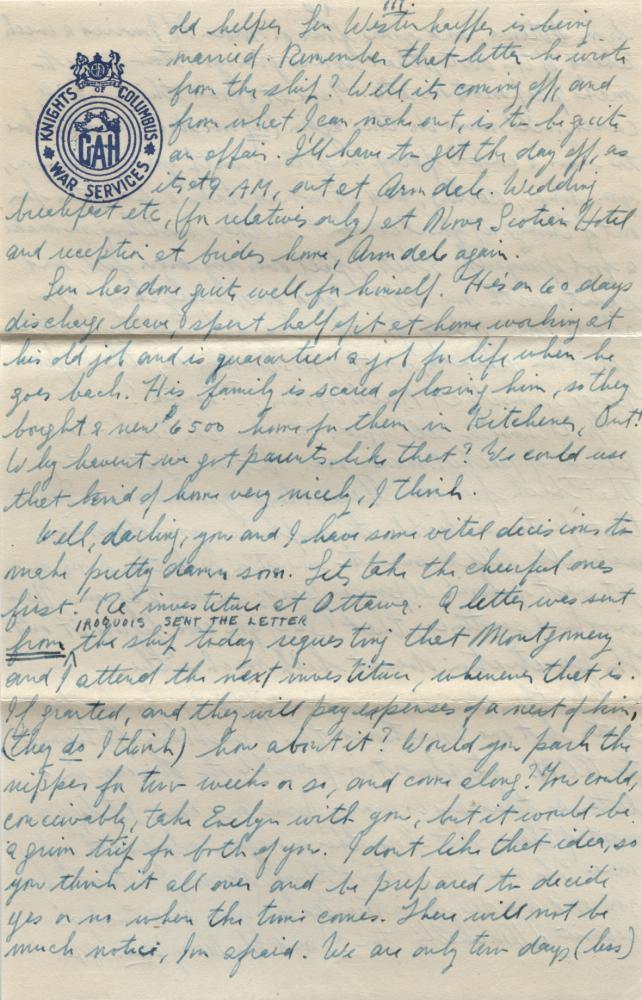 III.
old helper Len Westerhoeffer is being
married. Remember that letter he wrote
from the ship? Well its coming off, and
from what I can make out, is to be quite
an affair. I'll have to get the day off, as
its at 9 AM, out at Armdale. Wedding
breakfast etc, (for relatives only) at Nova Scotian Hotel
and reception at brides home, Armdale again.
KNIGHTS OF COLUMBUS
CAH
WAR SERVICES
Len has done quite well for himself. He's on 60 days
discharge leave, spent half of it at home working at
his old job and is guaranteed a job for life when he
goes back. His family is scared of losing him, so they
bought a new $6500 home for them in Kitchener, Ont!
Why havent we got parents like that? We could use
that kind of home very nicely, I think.
Well, darling, you and I have some vital decisions to
make pretty damn soon. Lets take the cheerful ones
first. Re investiture at Ottawa. A letter was sent
IROQUOIS SENT THE LETTER
from the ship today requesting that Montgomery
and I attend the next investiture, whenever that is.
If granted, and they will pay expenses of a next of kin,
(they do I think) how about it? Would you park the
nipper for two weeks or so, and come along? You could,
conceivably, take Evelyn with you, but it would be
a grim trip for both of you. I dont like that idea, so
you think it all over and be prepared to decide
yes or no when the time comes. There will not be
much notice, Im afraid. We are only two days (less)